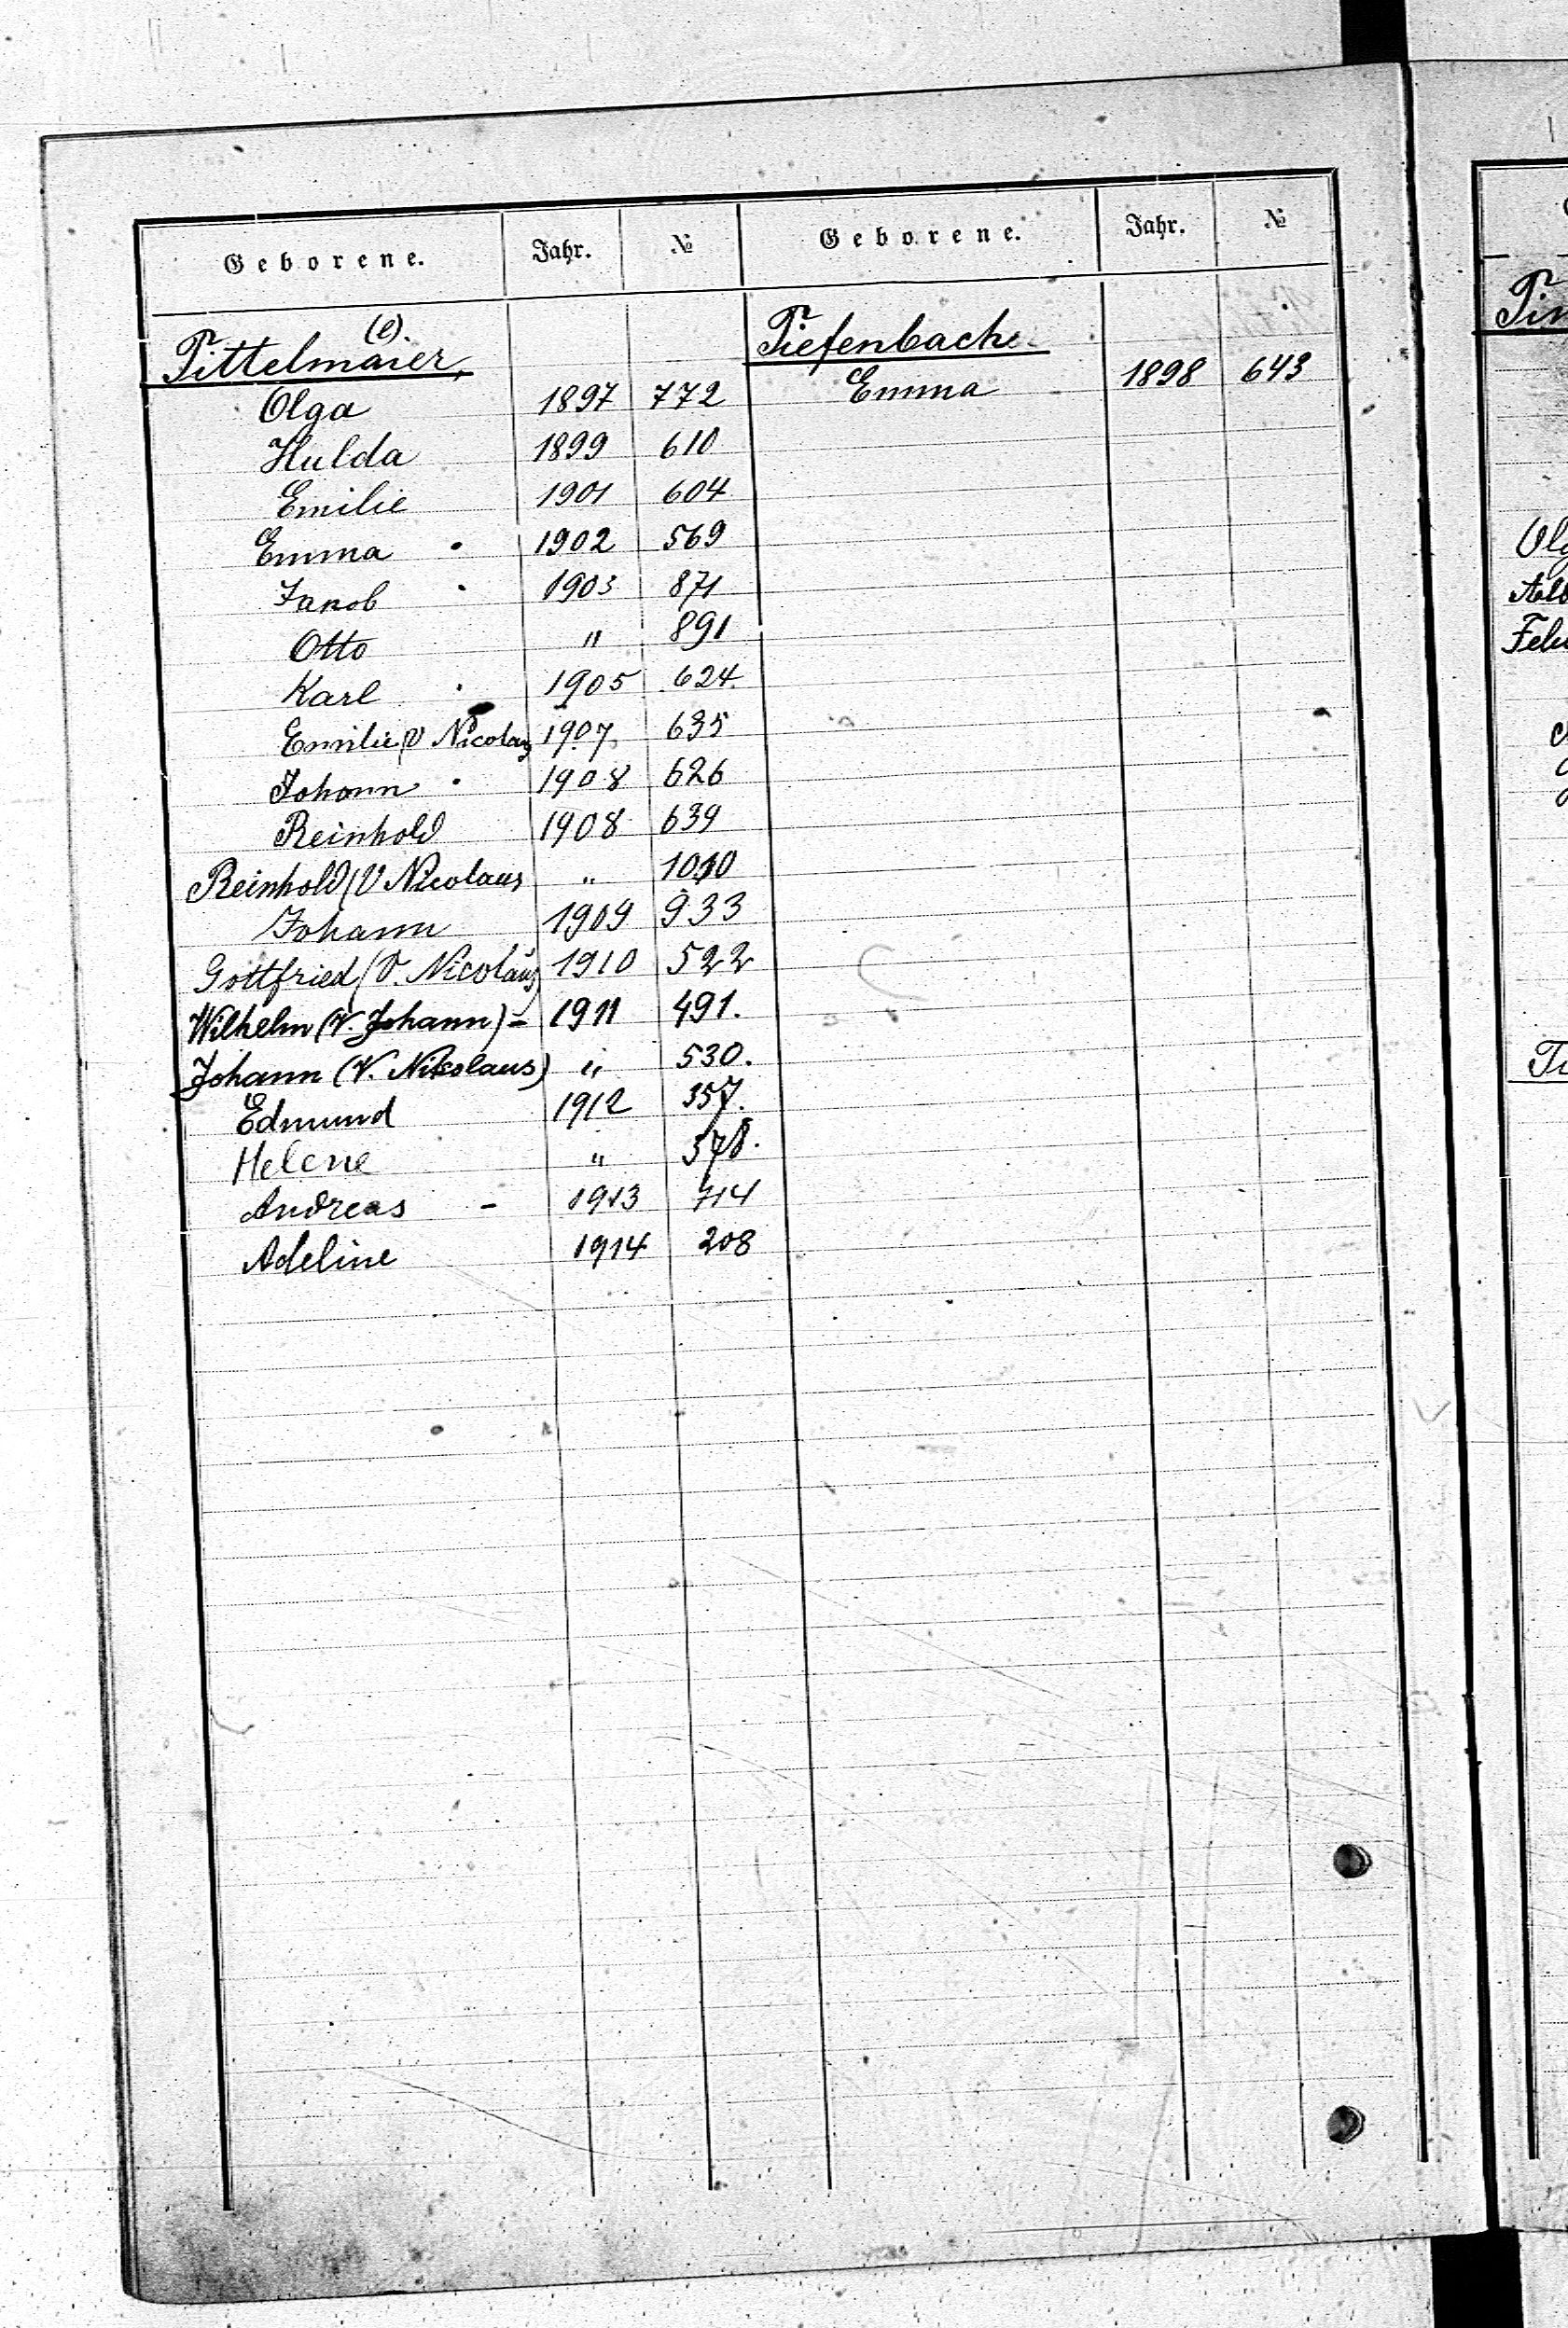 Geborene. Jahr. № Geborene. Jahr. №
(e).
Tittelmaier, Tiefenbache
Olga 1897 772 Emma 1898 643
Hulda 1899 610
Emilie 1901 604
Emma 1902 569
Jakob 1903 871
Otto " 891
Karl 1905 624.
Emilie (V Nicolaus 1907 635
Johann 1908 626
Reinhold 1908 639
Reinhold (V Nicolaus " 1010
Johann 1909 933
Gottfried (V. Nicolaus) 1910 522
Wilhelm (V. Johann) - 1911 491.
Johann (V. Nikolaus) " 530.
Edmund 1912 357.
Helene " 578.
Andreas - 1913 714
Adeline 1914 208